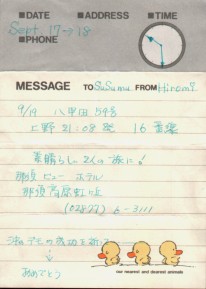 ■DATE ■ADDRESS ■TIME
Sept 17→18
■PHONE
MESSAGE TO Susumu FROM Hiromi
9/17 八甲田54号
上野 21:08発 16番線
素晴らしい2人の旅に!
那須ビューホテル
那須高原
(02877) 6-3111
の成功を祈って
↓
おめでとう
our nearest and dearest animals